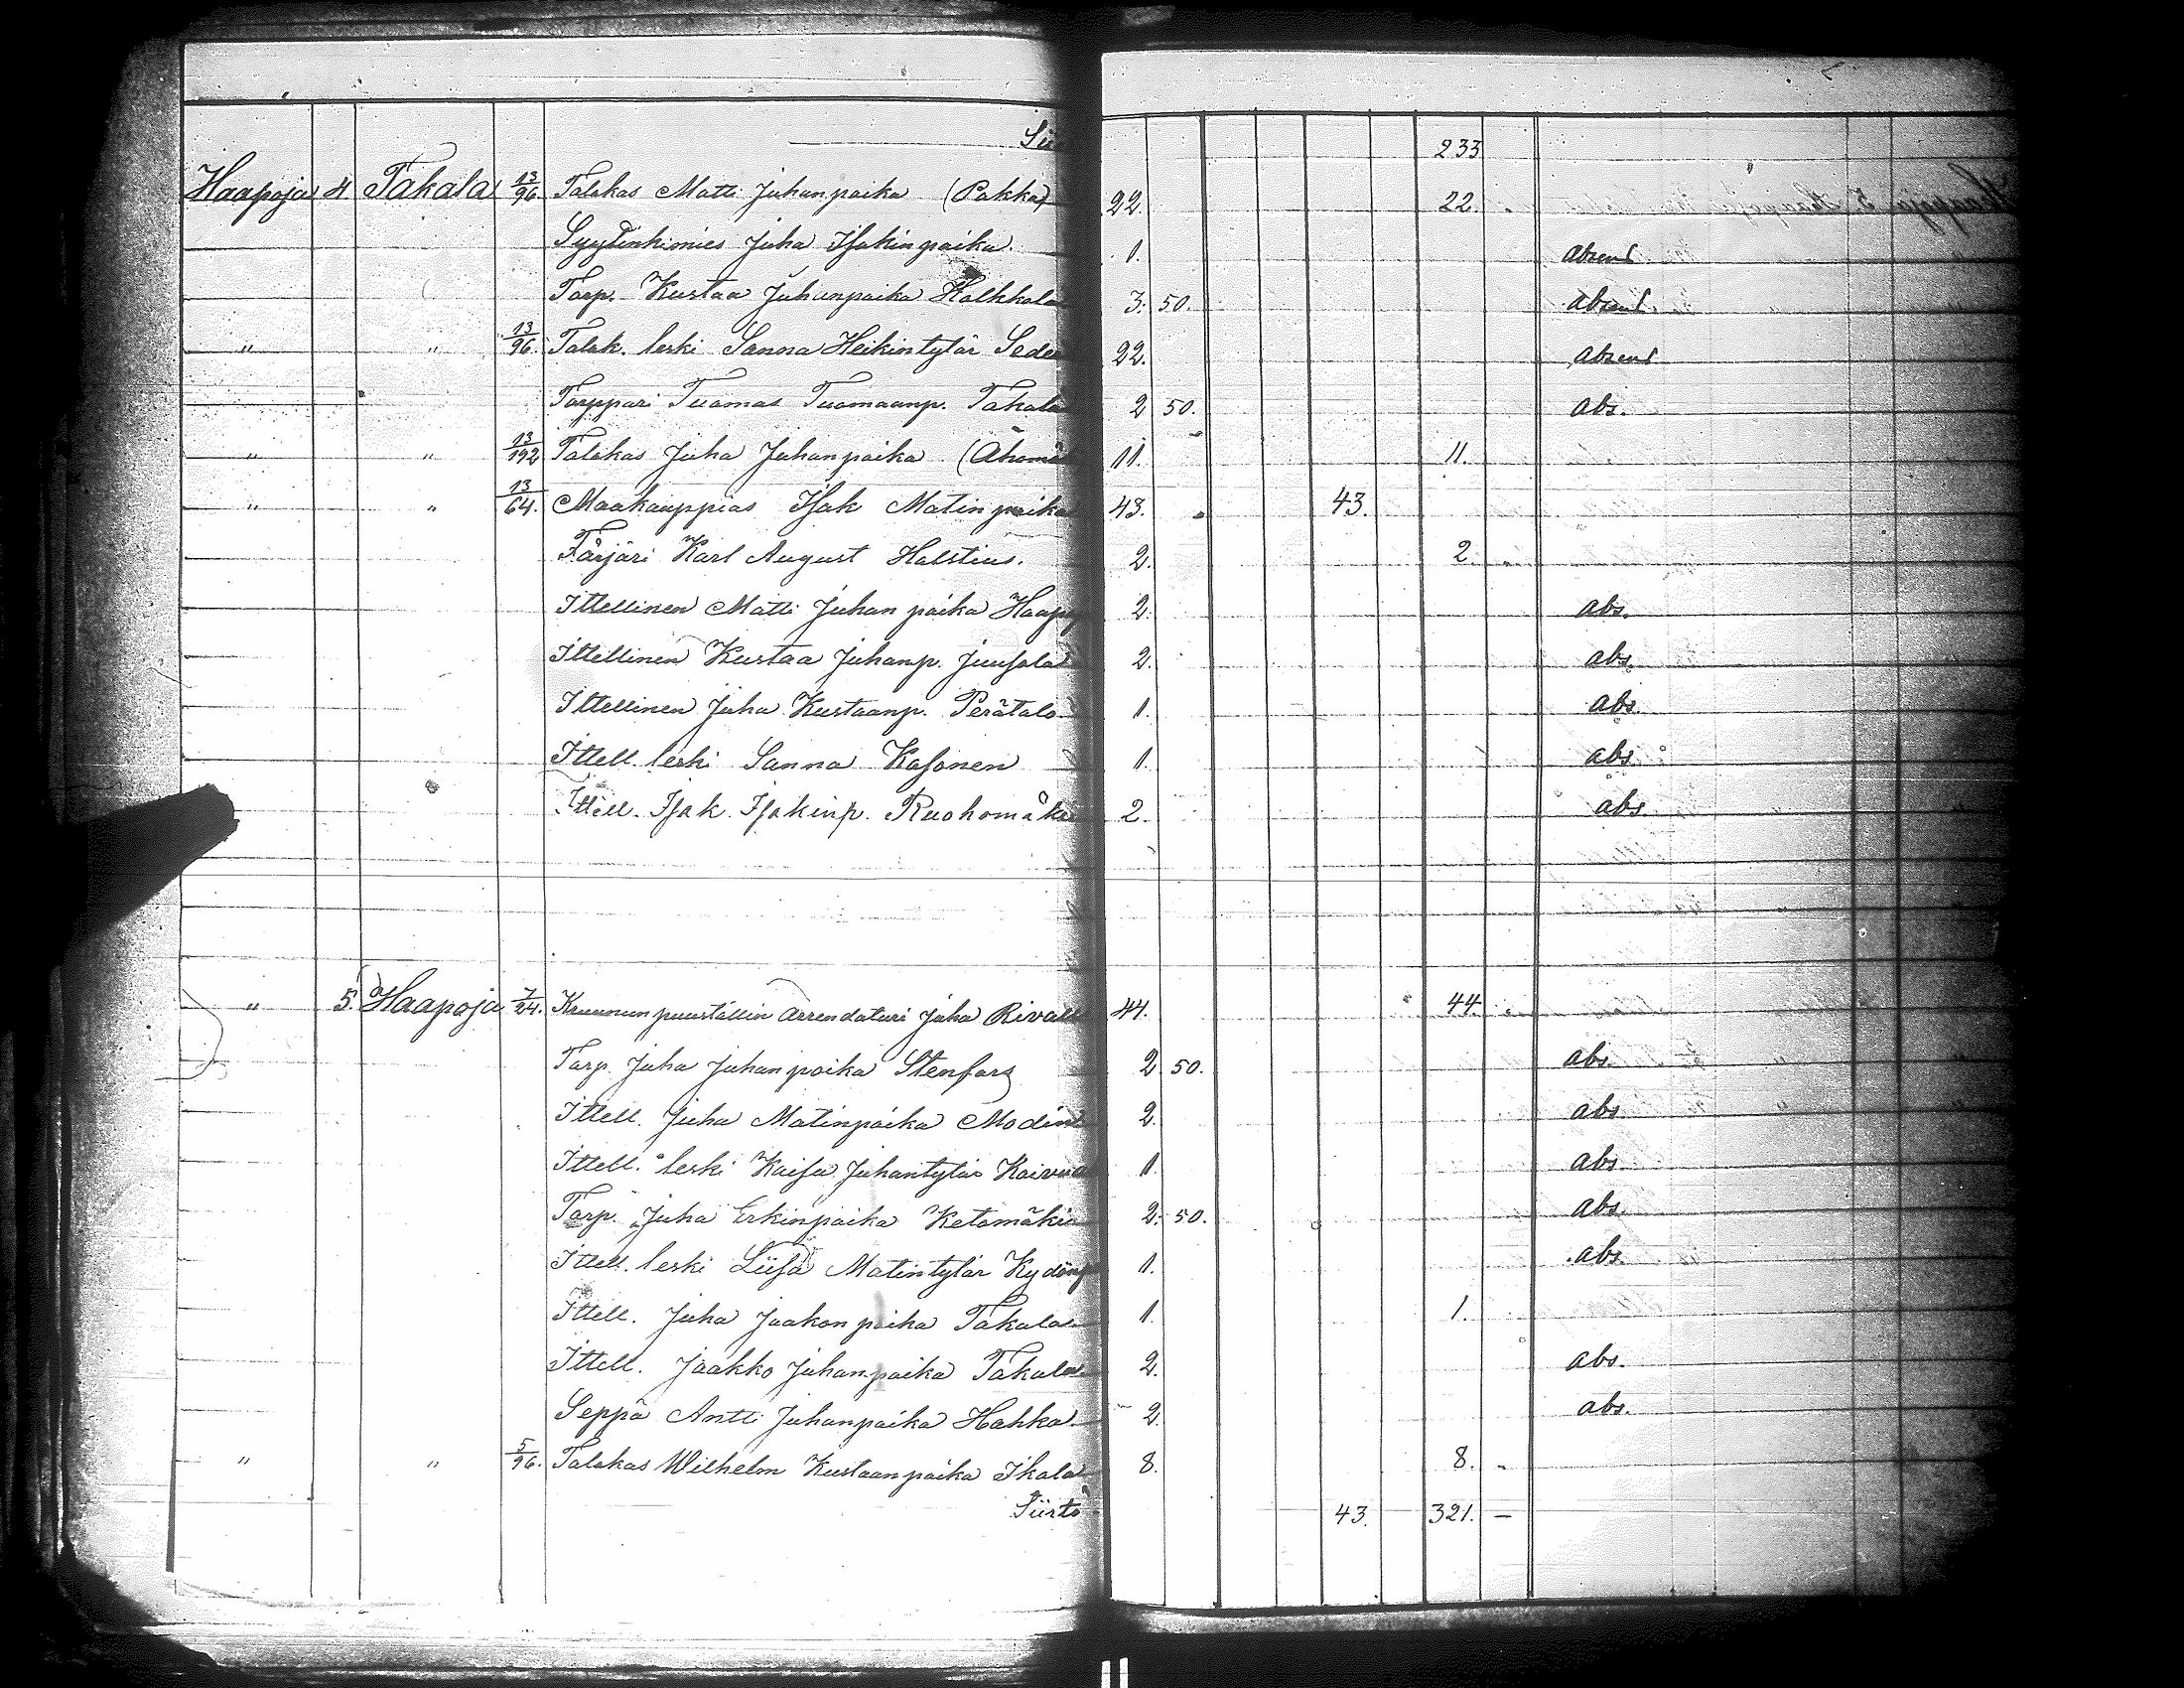 233
Haapoja 4 Takala 13/96 Talokas Matti Juhanpoika (Pakka) 22. 22.
Syytinkimies Juha Isakinpoika. 1. Absent
Torp. Kustaa Juhanpoika Kalkkala 3. 50. Absent.
" " 13/96. Talok. leski Sanna Heikintytär 22. Absent
Torppari Tuomas Tuomaanp. Takala 2 50. Abs.
" " 13/192 Talokas Juha Juhanpoika 11. 11.
" " 13/64. Maakauppias Isak Matinpoika 43. 43.
Färjäri Karl August Halstius. 2. 2
Ittellinen Matti Juhanpoika 2. abs.
Ittellinen Kustaa Juhanp. Juusala 2. abs.
Ittellinen Juha Kustaanp. Perätalo 1. abs.
Ittell. leski Sanna Kasonen 1. abs.
Ittell. Isak. Isakinp. Ruohomäki 2. abs.
" 5. Haapoja 7/24. Kruunun puustallin Arrendaturi Juha 44. 44.
Torp. Juha Juhanpoika Stenfors 2 50. abs.
Ittell. Juha Matinpoika Modin 2. abs
Ittell. leski Kaisa Juhantytär 1 abs
Torp. Juha Erkinpoika Ketomäki 2. 50. abs.
Ittell. leski Liisa Matintytär 1. abs.
Ittell. Juha Jaakonpoika Takala 1. 1.
Ittell. Jaakko Juhanpoika Takala 2. abs.
Seppä Antti Juhanpoika Hahka 2. abs.
" " 5/96. Talokas Wilhelm Kustaanpoika Ikola 8. 8.
Siirto 43. 321. —